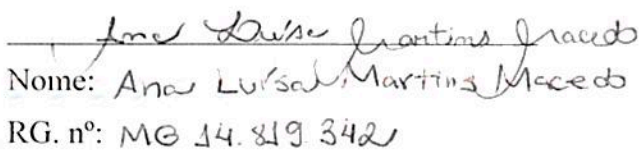 Ana Luísa Martins Macedo
Nome: Ana Luísa Martins Macedo
RG. nº: MG 14.819.342